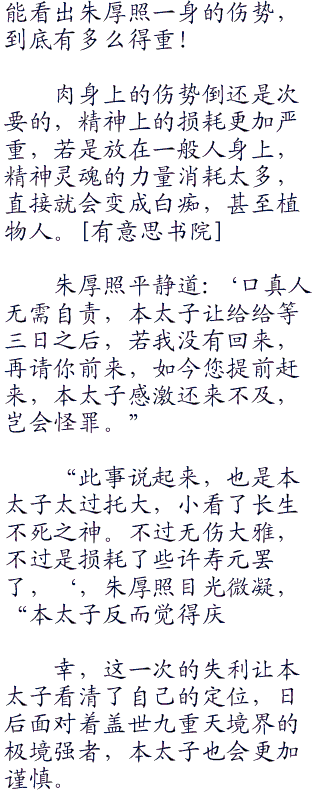 能看出朱厚照一身的伤势，
到底有多么得重！
肉身上的伤势倒还是次
要的，精神上的损耗更加严
重，若是放在一般人身上，
精神灵魂的力量消耗太多，
直接就会变成白痴，甚至植
物人。[有意思书院]
朱厚照平静道：‘口真人
无需自责，本太子让给给等
三日之后，若我没有回来，
再请你前来，如今您提前赶
来，本太子感激还来不及，
岂会怪罪。”
“此事说起来，也是本
太子太过托大，小看了长生
不死之神。不过无伤大雅，
不过是损耗了些许寿元罢
了，‘，朱厚照目光微凝，
“本太子反而觉得庆
幸，这一次的失利让本
太子看清了自己的定位，日
后面对着盖世九重天境界的
极境强者，本太子也会更加
谨慎。